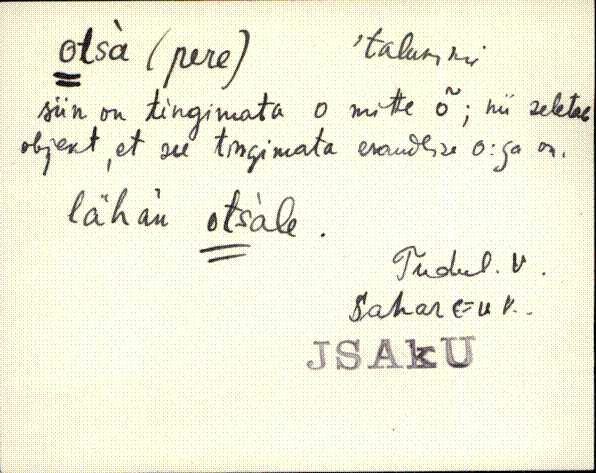 otsà (pere) 'talunimi
siin on tingimata o mitte õ; nii seletab
objekt, et see tingimata eraudlise o:ga on.
lähän otsàle.
Tudul. V.
JSAkU